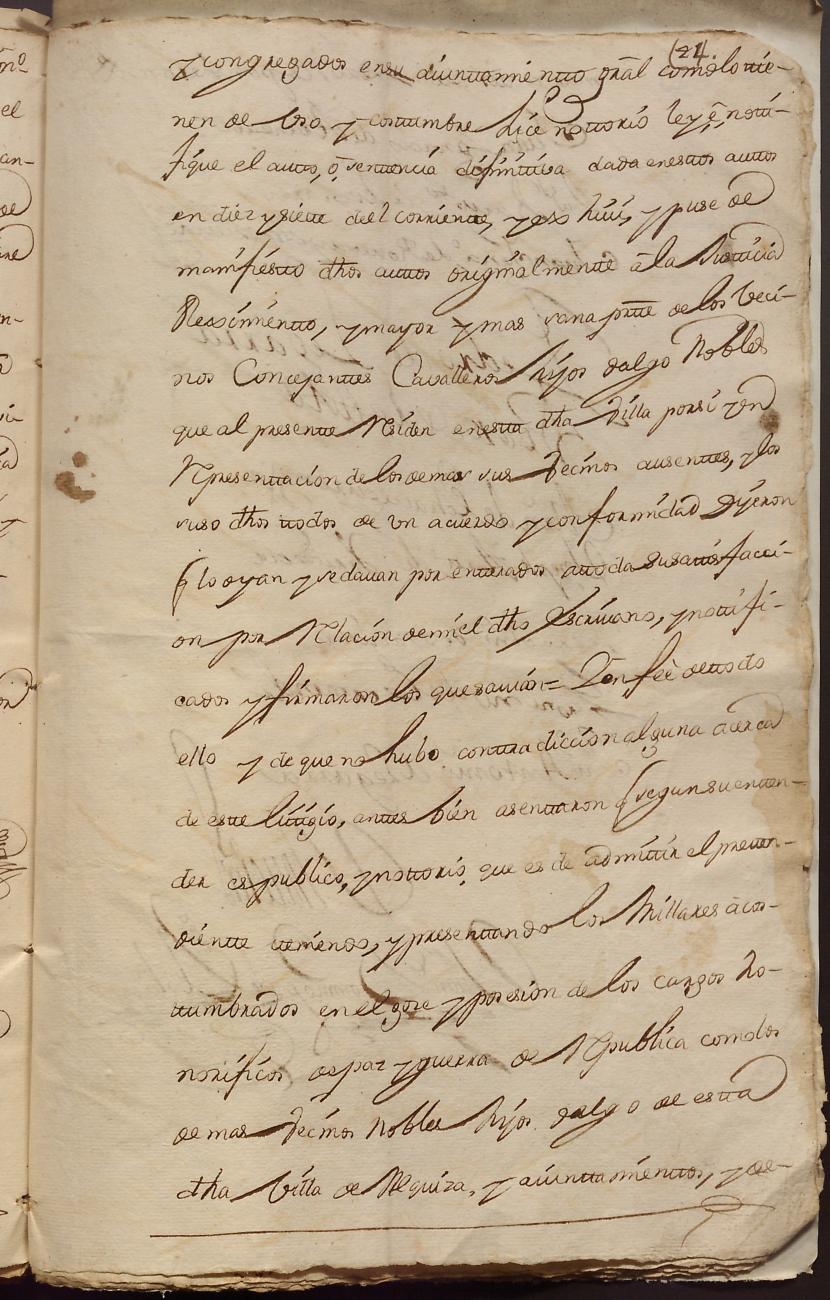 (24.
y congregados en su aiuntamientto gral como lo ttie-
nen de vso, y costtumbre hice nottorio ley, è nottì-
fique el autto, ò senttencia difinittiva dada en esttos auttos
en diez y siette del corriente, y eso hiu, y puse de
manifiestto dhos auttos originalmentte â la Justticia
Reximientto, y mayor y mas sana prtte de los Veci-
nos Concejanttes Cavalleros hijos dalgo Nobles
que al presentte Residen en estta dha Villa por si y en
Representtacion de los demas sus Vecinos ausenttes, y los
suso dhos ttodos de vn acuerdo y conformidad dijeron
q lo oyan y se davan por entterados a ttoda su sattisfacci-
on por Relacion de mi el dho Escrivano, y nottifi-
cados y firmaron los que savian = Y en feè de ttodo
ello y de que no hubo conttradiccion alguna acerca
de estte littigio, anttes bien asenttaron q segun su entten-
der es publico, y nottorio, que es de admittir el pretten-
diente ttemendo, y presenttando los Millares acos-
ttumbrados en el goze y posesion de los cargos ho-
norificos de paz y guerra de Republica como los
demas Vecinos Nobles hijos dalgo de estta
dha Villa de Alquiza, y aiuntamienttos, y de-